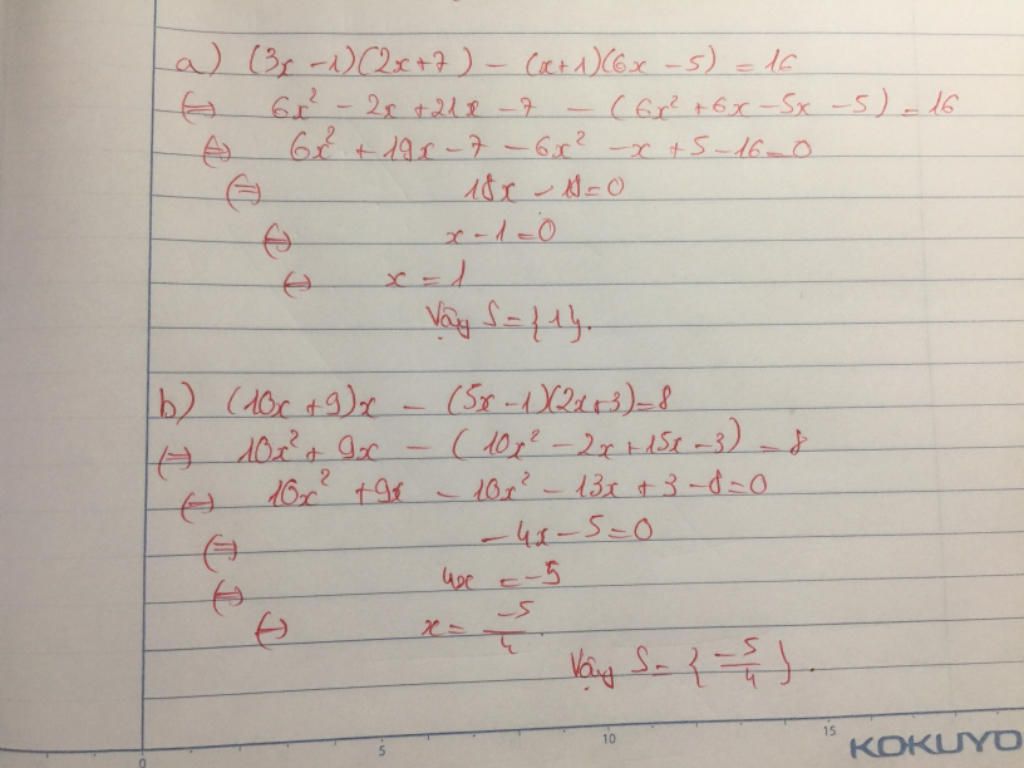 a) (3x -1)(2x+7) - (x+1)(6x -5) = 16
⇔ 6x² - 2x + 21x - 7 - (6x² + 6x - 5x - 5) = 16
⇔ 6x² + 19x - 7 - 6x² - x + 5 - 16 = 0
⇔ 18x - 18 = 0
⇔ x - 1 = 0
⇔ x = 1
Vậy S = {1}.
b) (10x + 9)x - (5x - 1)(2x+3) = 8
⇔ 10x² + 9x - (10x² - 2x + 15x - 3) = 8
⇔ 10x² + 9x - 10x² - 13x + 3 - 8 = 0
⇔ -4x - 5 = 0
⇔ 4x = -5
⇔ x = -5/4
Vậy S = {-5/4}.
0 5 10 15 KOKUYO